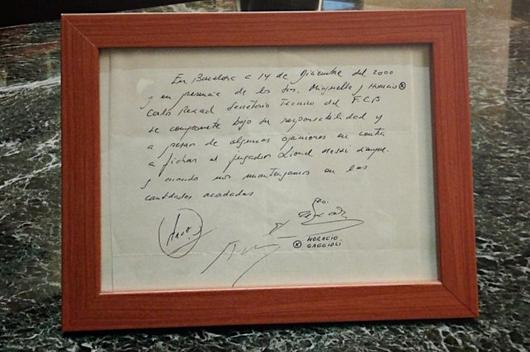 En Barcelona a 14 de Diciembre del 2000
y en presencia de los Srs. Minguella y Horacio ⓧ
Carlos Rexach Secretario Técnico del F.C.B
se compromete bajo su responsabilidad y
a pesar de algunas opiniones en contra
a fichar al jugador Lionel Messi siempre
y cuando nos mantengamos en las
cantidades acordadas
ⓧ HORACIO
GAGGIOLI